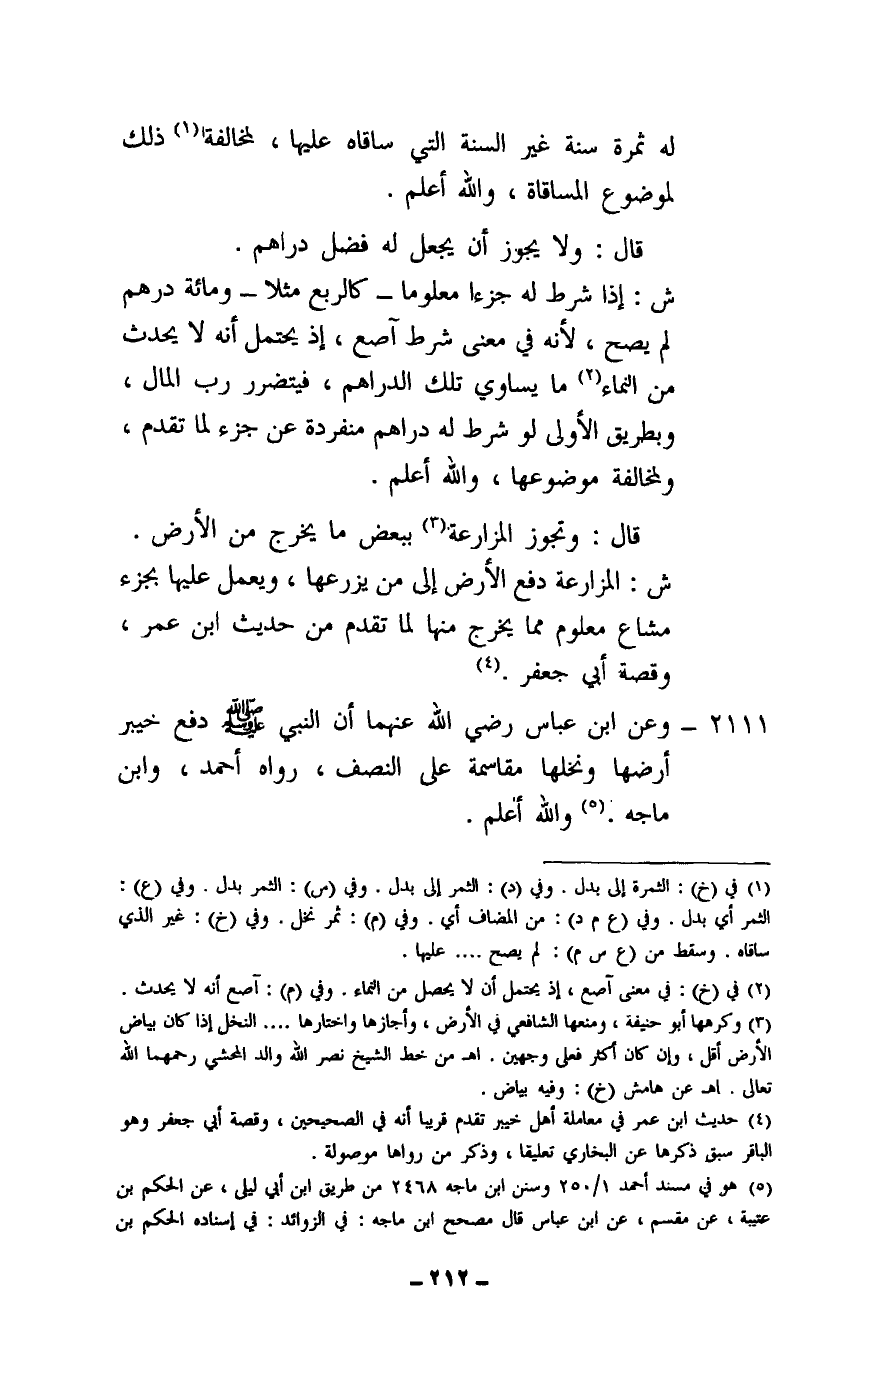 له ثمرة سنة غير السنة التي ساقاه عليها ، لمخالفة(١) ذلك
لموضوع المساقاة ، والله أعلم .
قال : ولا يجوز أن يجعل له فضل دراهم .
ش : إذا شرط له جزءا معلوما – كالربع مثلا – ومائة درهم
لم يصح ، لأنه في معنى شرط آصع ، إذ يحتمل أنه لا يحدث
من النماء(٢) ما يساوي تلك الدراهم ، فيتضرر رب المال ،
وبطريق الأولى لو شرط له دراهم منفردة عن جزء لما تقدم ،
ولمخالفة موضوعها ، والله أعلم .
قال : وتجوز المزارعة(٣) ببعض ما يخرج من الأرض .
ش : المزارعة دفع الأرض إلى من يزرعها ، ويعمل عليها بجزء
مشاع معلوم مما يخرج منها لما تقدم من حديث ابن عمر ،
وقصة أبي جعفر .(٤)
٢١١١ – وعن ابن عباس رضي الله عنهما أن النبي ﷺ دفع خيبر
أرضها ونخلها مقاسمة على النصف ، رواه أحمد ، وابن
ماجه .(٥) والله أعلم .
(١) في (خ) : الثمرة إلى بدل . وفي (د) : الثمر إلى بدل . وفي (س) : الثمر بدل . وفي (ع) :
الثمر أي بدل . وفي (ع م د) : من المضاف أي . وفي (م) : ثمر نخل . وفي (خ) : غير الذي
ساقاه . وسقط من (ع س م) : لم يصح .... عليها .
(٢) في (خ) : في معنى آصع ، إذ يحتمل أن لا يحصل من النماء . وفي (م) : آصع أنه لا يحدث .
(٣) وكرهها أبو حنيفة ، ومنعها الشافعي في الأرض ، وأجازها واختارها .... النخل إذا كان بياض
الأرض أقل ، وإن كان أكثر فعلى وجهين . اهـ من خط الشيخ نصر الله والد المحشي رحمهما الله
تعالى . اهـ عن هامش (خ) : وفيه بياض .
(٤) حديث ابن عمر في معاملة أهل خيبر تقدم قريبا أنه في الصحيحين ، وقصة أبي جعفر وهو
الباقر سبق ذكرها عن البخاري تعليقا ، وذكر من رواها موصولة .
(٥) هو في مسند أحمد ٢٥٠/١ وسنن ابن ماجه ٢٤٦٨ من طريق ابن أبي ليلى ، عن الحكم بن
عتيبة ، عن مقسم ، عن ابن عباس قال مصحح ابن ماجه : في الزوائد : في إسناده الحكم بن
– ٢١٢ –